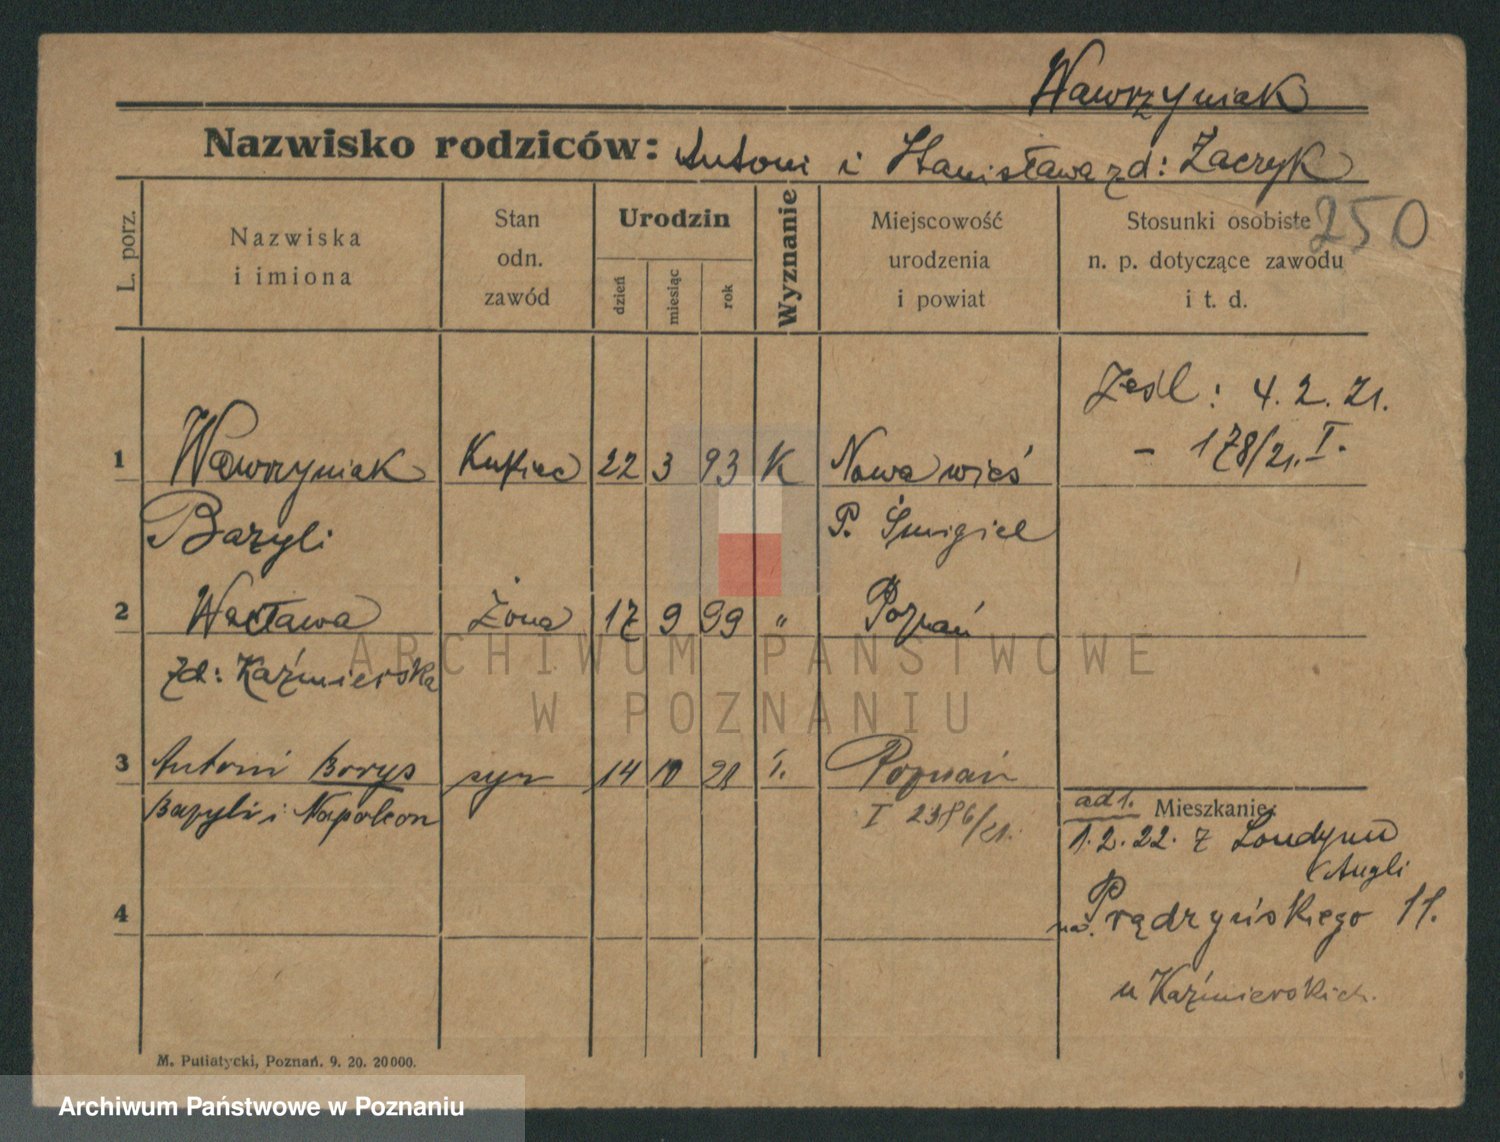 Wawrzyniak
Nazwisko rodziców: Antoni i Stanisława zd: Zaczyk
250
L. porz.
Nazwiska
i imiona
Stan
odn.
zawód
Urodzin
dzień
miesiąc
rok
Wyznanie
Miejscowość
urodzenia
i powiat
Stosunki osobiste
n. p. dotyczące zawodu
i t. d.
Zesl: 4. 2. 21.
- 178/21. I.
1 Wawrzyniak Kupiec 22 3 93 K Nowa wieś
Bazyli P. Śmigiel
2 Wacława Żona 17 9 99 " Poznań
zd: Kaźmierska
3 Antoni Borys syn 14 10 21 Poznań
Bazyli i Napoleon I 2386/21.
ad 1. Mieszkanie:
1. 2. 22. z Londynu
(Angli
na. Prądzyńskiego 11.
u Kaźmierskich.
4
M. Putiatycki, Poznań. 9. 20. 20000.
ARCHIWUM PAŃSTWOWE
W POZNANIU
Archiwum Państwowe w Poznaniu